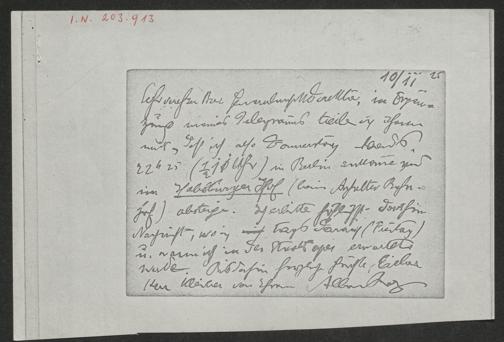 I.N. 203.913
10/II 25
Sehr verehrter Herr Generalmusikdirektor, in Ergän-
zung meines Telegramms teile ich Ihnen
mit, daß ich also Donnerstag Abends,
22h 25 (½ 11 Uhr) in Berlin ankomme und
im Habsburger Hof (beim Anhalter Bahn-
hof) absteige. Erbitte dorthin
Nachricht, wo ich tags darauf (Freitag)
u. wann ich in der Staatsoper erwartet
werde. Bis dahin Grüße, lieber
Herr Kleiber von Ihrem Alban Berg